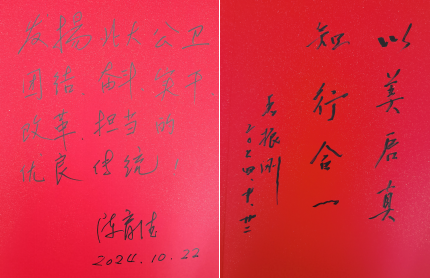 发扬北大公卫
团结 奋斗、实干
改革、担当的
优良传统！
陈育德
2024.10.22
以美启真
知行合一
振
二〇二四.十.廿二